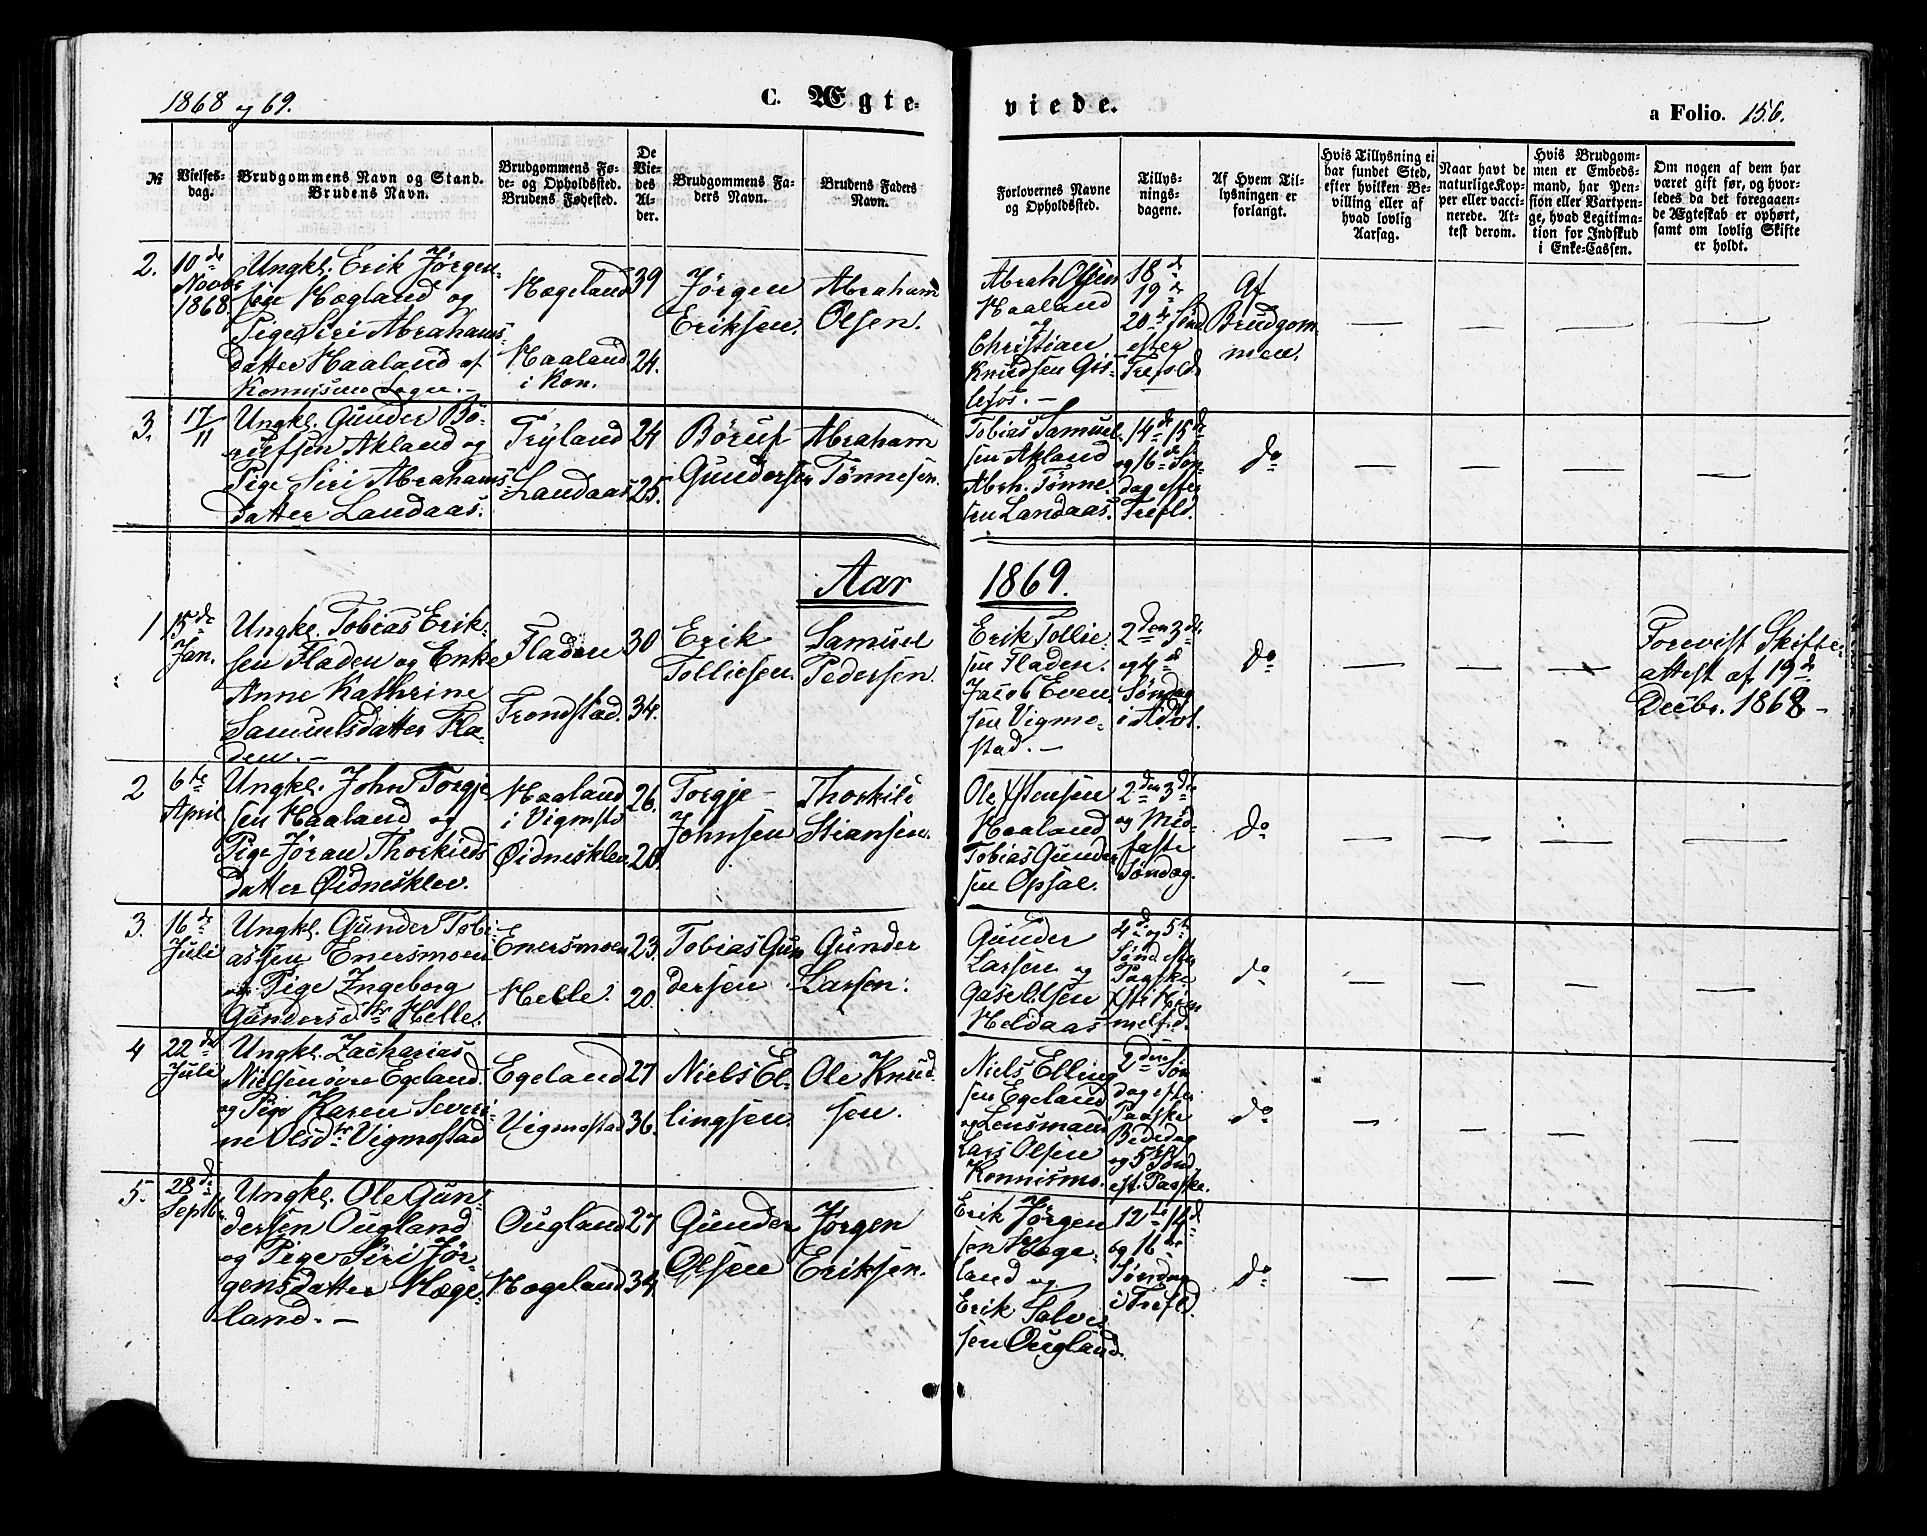 1868 og 69.
C. Ægte-
viede.
a Folio. 156.
№
Vielses-
dag.
Brudgommens Navn og Stand.
Brudens Navn.
Brudgommens Fø-
de- og Opholdssted.
Brudens Fødested.
De
Vie-
des
Al-
der.
Brudgommens Fa-
ders Navn.
Brudens Faders
Navn.
Forlovernes Navne
og Opholdssted.
Tillys-
nings-
dagene.
Af Hvem Til-
lysningen er
forlangt.
Hvis Tillysning ei
har fundet Sted,
efter hvilken Be-
villing eller af
hvad lovlig
Aarsag.
Naar havt de
naturlige Kop-
per eller vacci-
nerede. At-
test derom.
Hvis Brudgom-
men er Embeds-
mand, har Pen-
sion eller Vartpen-
ge, hvad Legitima-
tion for Indskud
i Enke-Cassen.
Om nogen af dem har
været gift før, og hvor-
ledes da det foregaaen-
de Ægteskab er ophørt,
samt om lovlig Skifte
er holdt.
2.
10de
Novbr
1868.
Ungkl. Erik Jørgen-
sen Hægland og
Pige Siri Abrahams-
datter Haaland af
Konnismo Sogn. -
Hægeland
Haaland
i Kon.
39
24.
Jørgen
Eriksen.
Abraham
Olsen.
Abrah Olsen
Haaland
og
Christian
Knudsen Gis-
lefos. -
18de
19de
20de Sønd
efter
Trefold.
Af
Brudgom
men.
3.
17/11
Ungkl. Gunder Bø-
rufsen Akland og
Pige Siri Abrahams-
datter Landaas.
Tryland
Landaas
24
25.
Børuf
Gundersen
Abraham
Tønnesen.
Tobias Samuel-
sen Akland
Abrh. Tønne-
sen Landaas.
14de 15de
og 16de Søn-
dag efter
Trefld.
do
Aar 1869.
1
15de
Jan.
Ungkl. Tobias Erik-
sen Fladen og Enke
Anne Kathrine
Samuelsdatter Fla-
den. -
Fladen
Trondstad.
30
34.
Erik
Tolliesen.
Samuel
Pedersen.
Erik Tollie-
sen Fladen.
Jacob Even-
sen Vigmo-
stad. -
2den 3de
og 4de
Søndag
i Advt.
do
Forevist Skifte-
attest af 19de
Decbr. 1868 -
2
6te
April
Ungkl. John Torgje-
sen Haaland og
Pige Jøran Thorkilds
datter Øidnesklev.
Haaland
i Vigmsto
Øidnesklev
26.
20.
Torgje -
Johnsen
Thorkild
Stiansen.
Ole Ystensen
Haaland
Tobias Gunder
sen Opsal.
2den 3die
og Mid-
faste
Søndag.
do
3.
16de
Juli
Ungkl. Gunder Tobi-
assen Enersmoen
og Pige Ingeborg
Gundersdtr Helle.
Enersmoen
Helle.
23.
20.
Tobias Gun
dersen
Gunder
Larsen.
Gunder
Larsen og
Olsen
Heldaas
4de og 5te
Sønd efter
Paaske
Himmelf.d.
do
4
22de
Juli
Ungkl. Zacharias
Nielsen øvre Egeland.
og Pige Karen Severi-
ne Olsdtr Vigmostad
Egeland
Vigmostad
27
36.
Niels El-
lingsen.
Ole Knud-
sen.
Niels Elling
sen Egeland
og Lensmand
Lars Olsen
Konnismo.
2den Søn
dag efter
Paaske
Bededag
og 5te Sønd
eft. Paaske.
do
5.
28de
Septbr
Ungkl. Ole Gun-
dersen Ougland
og Pige Siri Jør-
gensdatter Hæge-
land. -
Ougland
Hægeland
27
34
Gunder
Olsen
Jørgen
Eriksen.
Erik Jørgen
sen Hæge-
land og
Erik Salve-
sen Ougland.
12te 14de
og 16de
Søndag
i Trefld.
do